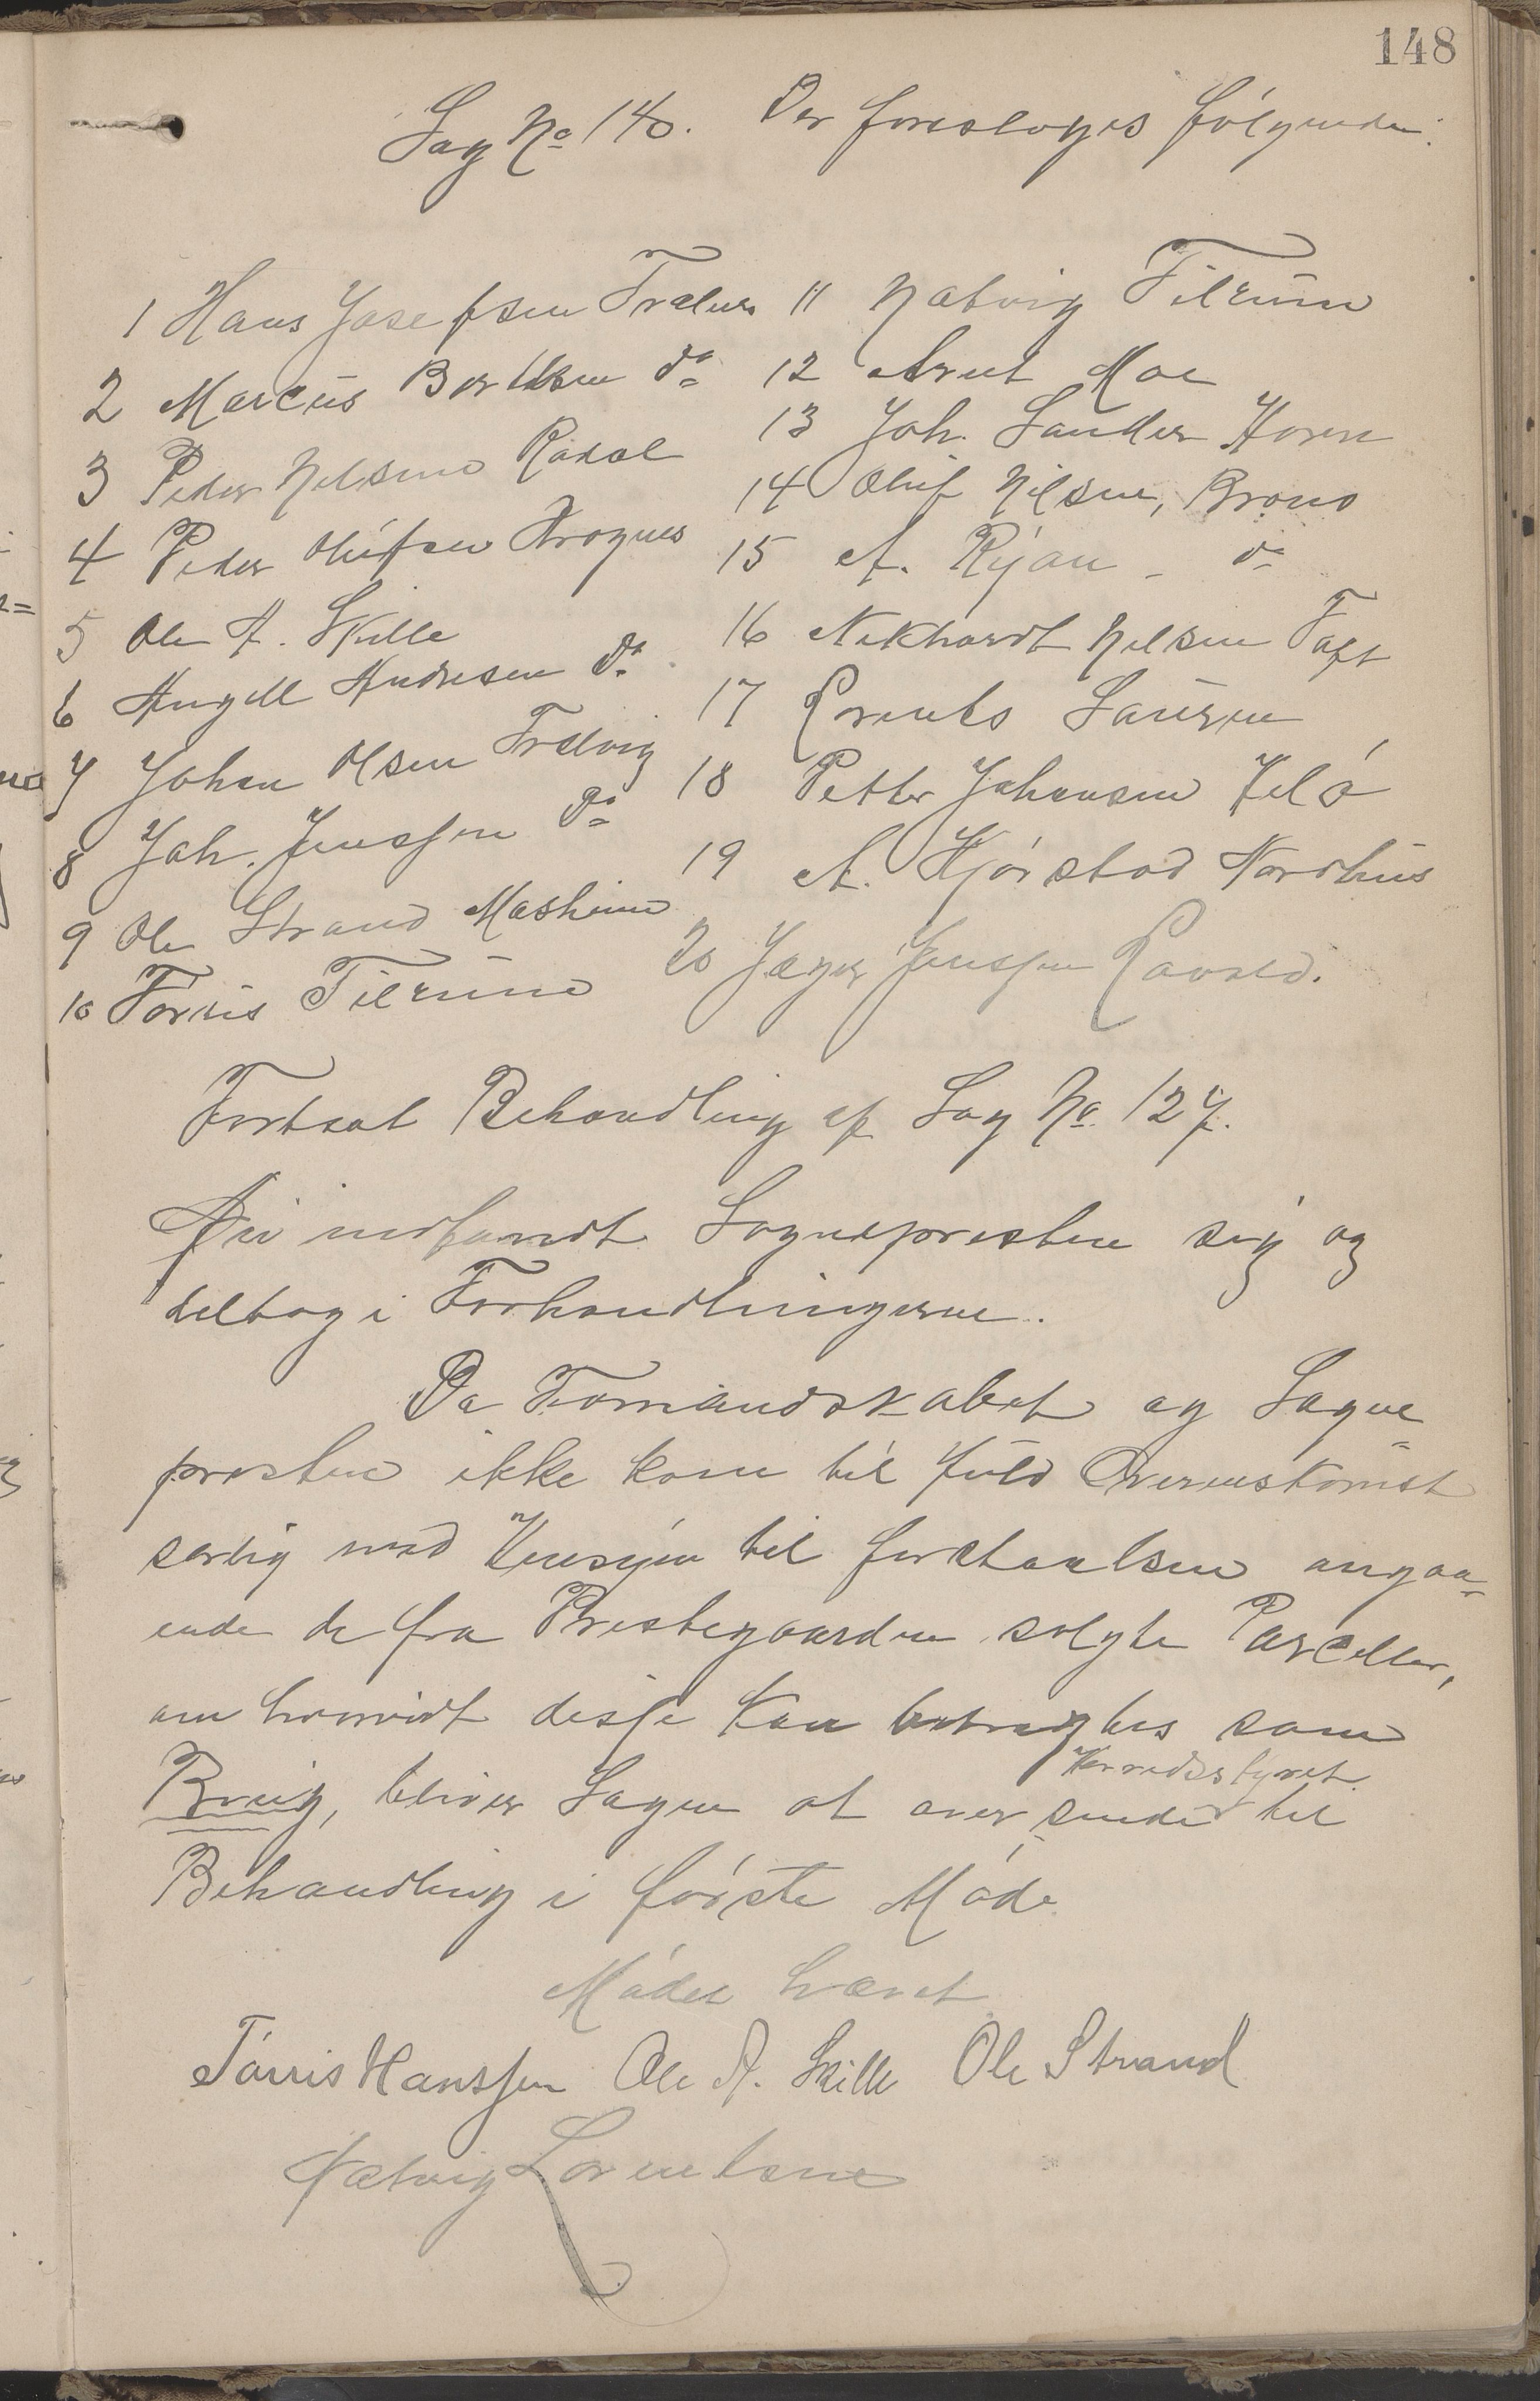 148
Sag No 140. Der foresloges følgende:
1 Hans Josefsen Trælnes
2 Marcus Bertilsen do
3 Peder Nilsen Rådal
4 Peder Olufsen Krognes
5 Ole A. Skille
6 Angell Andresen do
7 Johan Olsen Trælvig
8 Joh. Jenssen do
9 Ole Strand Mosheim
10 Torris Tilrum
11 Natvig Tilrum
12 Arnt Moe
13 Joh. Sander Horn
14 Oluf Nilsen, Brønø
15 A. Rijan - do
16 Nekhardt Nilsen Toft
17 Lorents Sausen
18 Petter Johansen Helø
19 A. Kjørstad Nordhus
20 Jæger Jenssen Lovold.
Fortsat Behandling af Sag No. 127.
Nu indfandt Sognepresten sig og
deltog i Forhandlingerne.
Da Formandskabet og Sogne
presten ikke kom til fuld Overenskomst
særlig med Hensyn til forstaaelsen angaa-
ende de fra Prestegaarden solgte Parceller,
om hvorvidt disse kan betragtes som
Brug, bliver Sagen at oversende Herredsstyret til
Behandling i første Møde
Mødet hævet
Torris Hanssen Ole A. Skille Ole Strand
Natvig Lorentsen